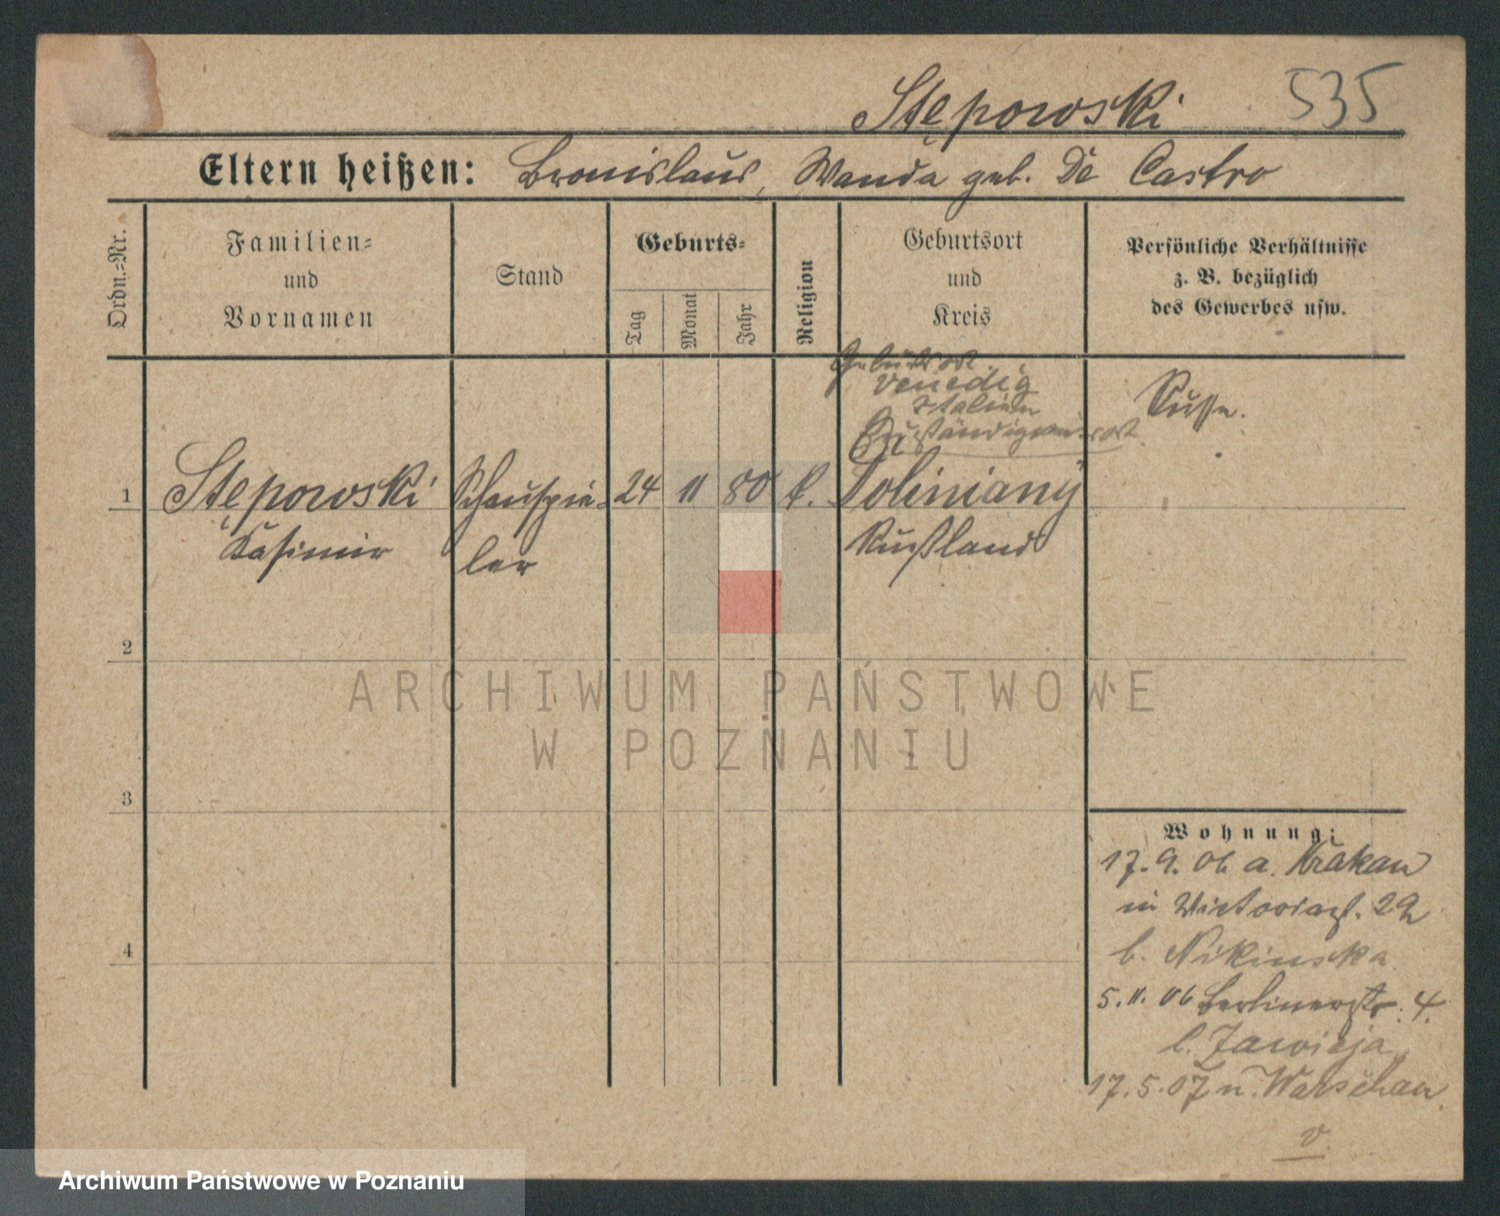 Stępowski 535
Eltern heißen: Bronislaus, Wanda geb. De Castro
Ordn.-Nr.
Familien-
und
Vornamen
Stand
Geburts-
Tag
Monat
Jahr
Religion
Geburtsort
und
Kreis
Persönliche Verhältnisse
z. B. bezüglich
des Gewerbes usw.
Geburtsort
Venedig
Italien
Zuständigkeitsort
Russe.
1 Stępowski Schauspie- 24 11 80 k. Poliniany
Kasimir ler Rußland
2
ARCHIWUM PAŃSTWOWE
W POZNANIU
3
Wohnung:
17.9.06 a. Krakau
in Victoriast. 22
b. Nikinska
4
5.11.06 Berlinerstr. 4.
b. Zawieja
17.5.07 n. Warschau
v
Archiwum Państwowe w Poznaniu